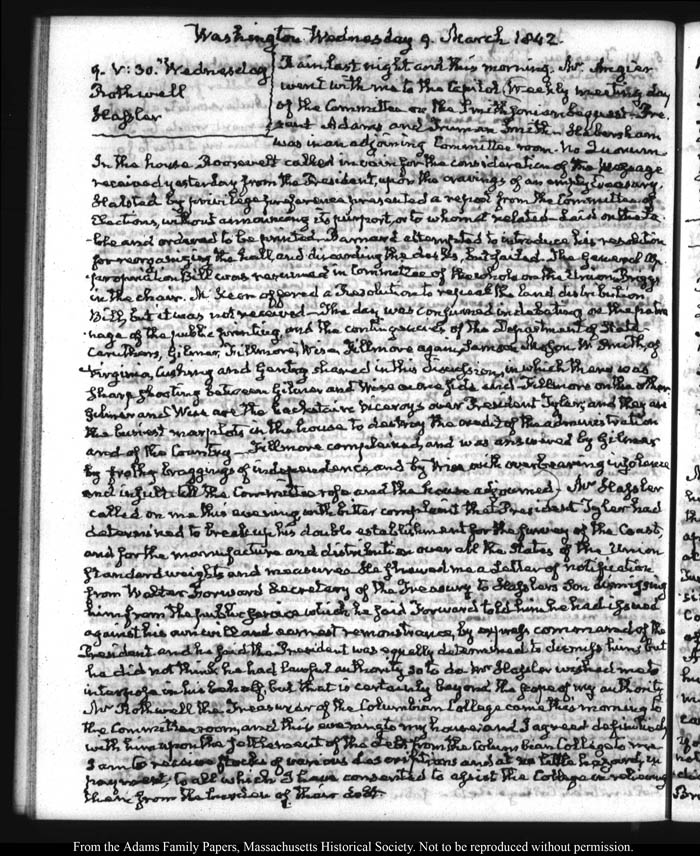 Washington Wednesday 9. March 1842.
9. V:30. Wednesday
Rothwell
Hassler
Rain last night and this morning. Mr. Angier
went with me to the Capitol, Weekly meeting day
of the Committee on the Smithsonian bequest. Pre-
sent Adams and Truman Smith. Habersham
was in an adjoining Committee room. No Quorum
In the house Roosevelt called in vain for the consideration of the Message
received yesterday from the President, upon the cravings of an empty Treasury.
Halsted by privilege preference presented a report from the Committee of
Elections, without announcing its purport, or to whom it related—Laid on the ta-
-ble and ordered to be printed. Barnard attempted to introduce his resolution
for reorganizing the hall, and discarding the desks, but failed. The General Ap-
propriation Bill was resumed in Committee of the whole on the Union, Briggs
in the chair. McKeon offered a Resolution to repeal the land distribution
Bill, but it was not received—The day was consumed in debating on the patro-
nage of the public printing and the contingencies of the Department of State—
Caruthers, Gilmer, Fillmore, Wise, Fillmore again, Samson Mason, Wm Smith, of
Virginia, Cushing and Gentry shared in this discussion, in which there was
sharp shooting between Gilmer and Wise on one side and Fillmore on the other
Gilmer and Wise are the backstairs viceroys over President Tyler, and they are
the busiest marplots in the house to destroy the credit of the administration
and of the Country—Fillmore complained, and was answered by Gilmer
by frothy braggings of independence, and by Wise with overbearing insolence
and insult till the Committee rose and the house adjourned. Mr Hassler
called on me this evening with bitter complaint that President Tyler had
determined to break up his double establishment for the survey of the Coast,
and for the manufacture and distribution over all the States of the Union
standard weights and measures. He shewed me a Letter of notification
from Walter Forward Secretary of the Treasury to Hassler's Son dismissing
him from the public service which he said Forward told him he had issued
against his own will and earnest remonstrance, by express command of the
President and he said the President was equally determined to dismiss him, but
he did not think he had lawful authority so to do. Mr Hassler wished me to
interpose in his behalf, but that is certainly beyond the scope of my authority
Mr Rothwell the Treasurer of the Columbian College came this morning to
the Committee room, and this evening to my house, and I agreed definitively
with him upon the settlement of the debt from the Columbian College to me
I am to receive stocks of various descriptions and at no little hazard, in
payment, to all which I have consented to assist the College in relieving
them from the burden of their debt.
From the Adams Family Papers, Massachusetts Historical Society. Not to be reproduced without permission.